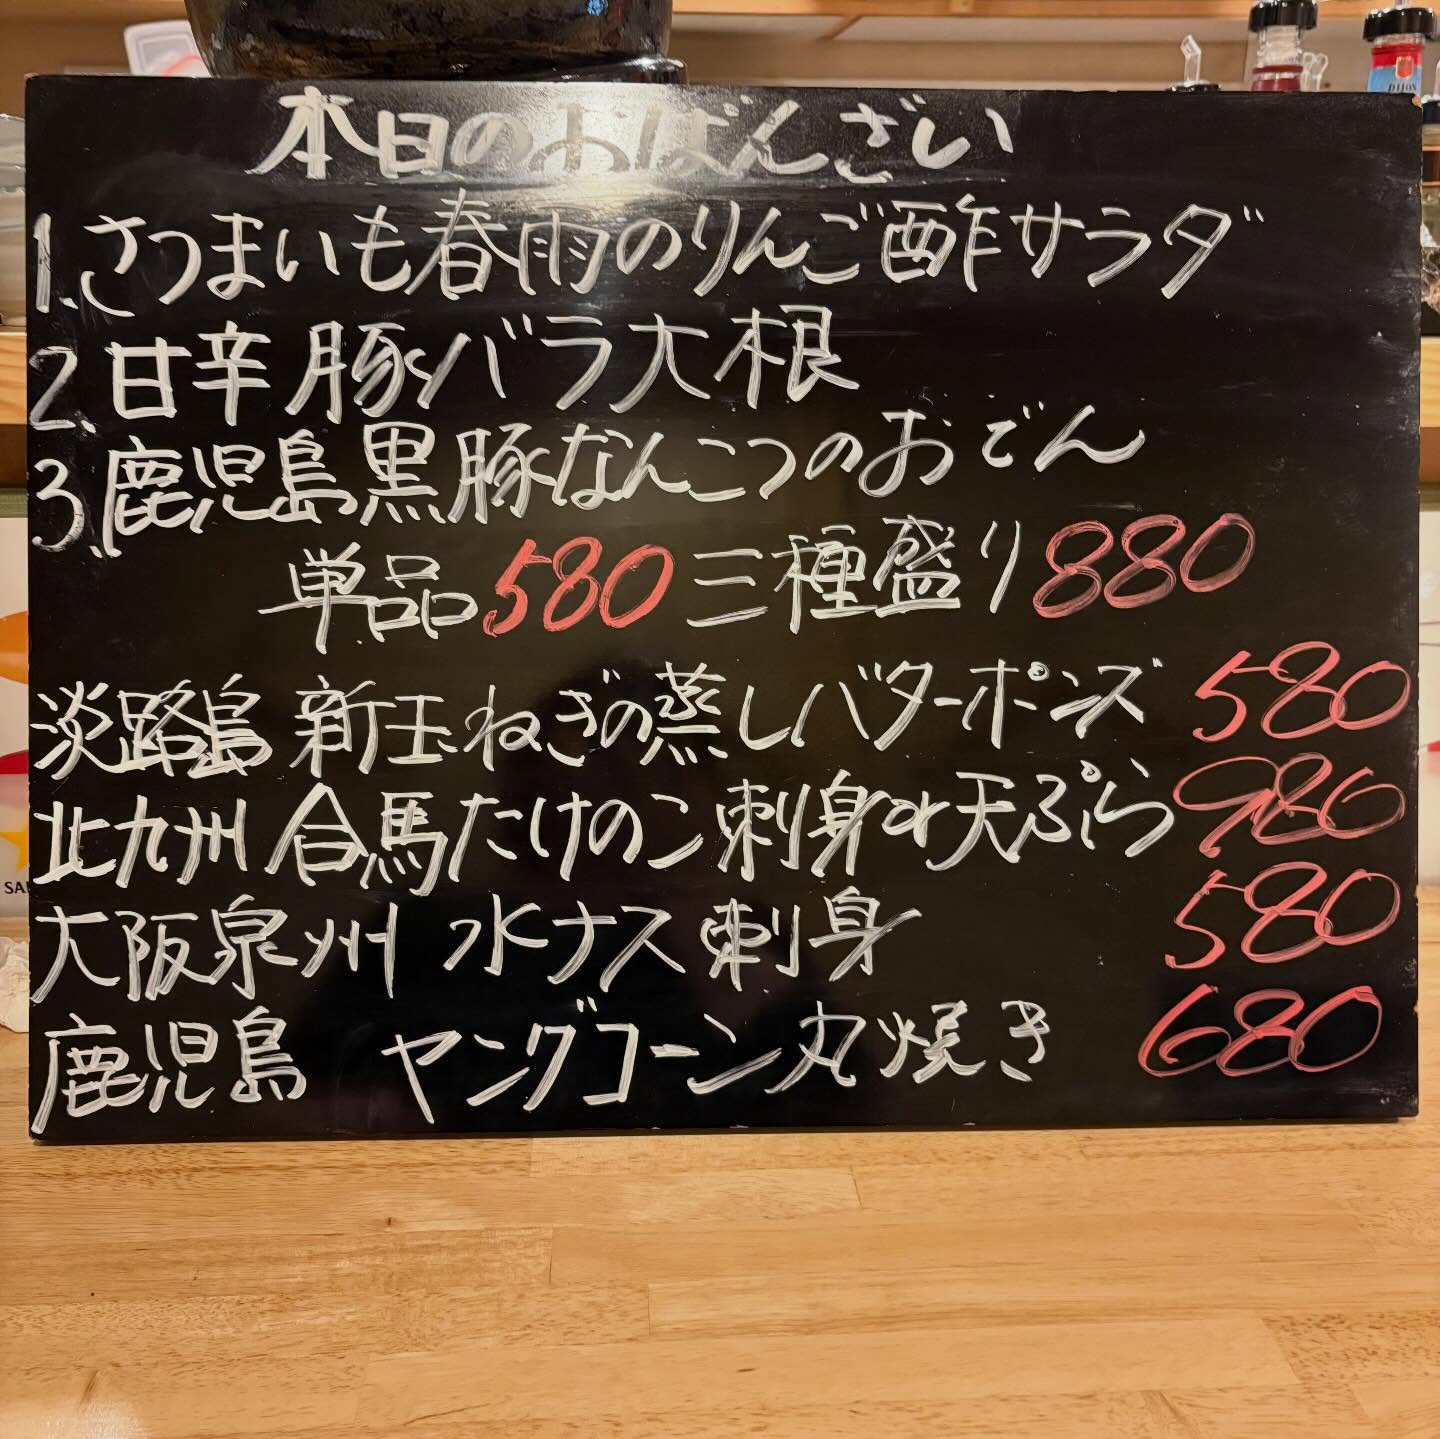 本日のおばんざい
1.さつまいも春雨のりんご酢サラダ
2.甘辛豚バラ大根
3.鹿児島黒豚なんこつのおでん
単品580 三種盛り880
淡路島 新玉ねぎの蒸しバターポンズ 580
北九州 合馬たけのこ刺身or天ぷら 980
大阪泉州 水ナス刺身 580
鹿児島 ヤングコーン丸焼き 680
DIJON